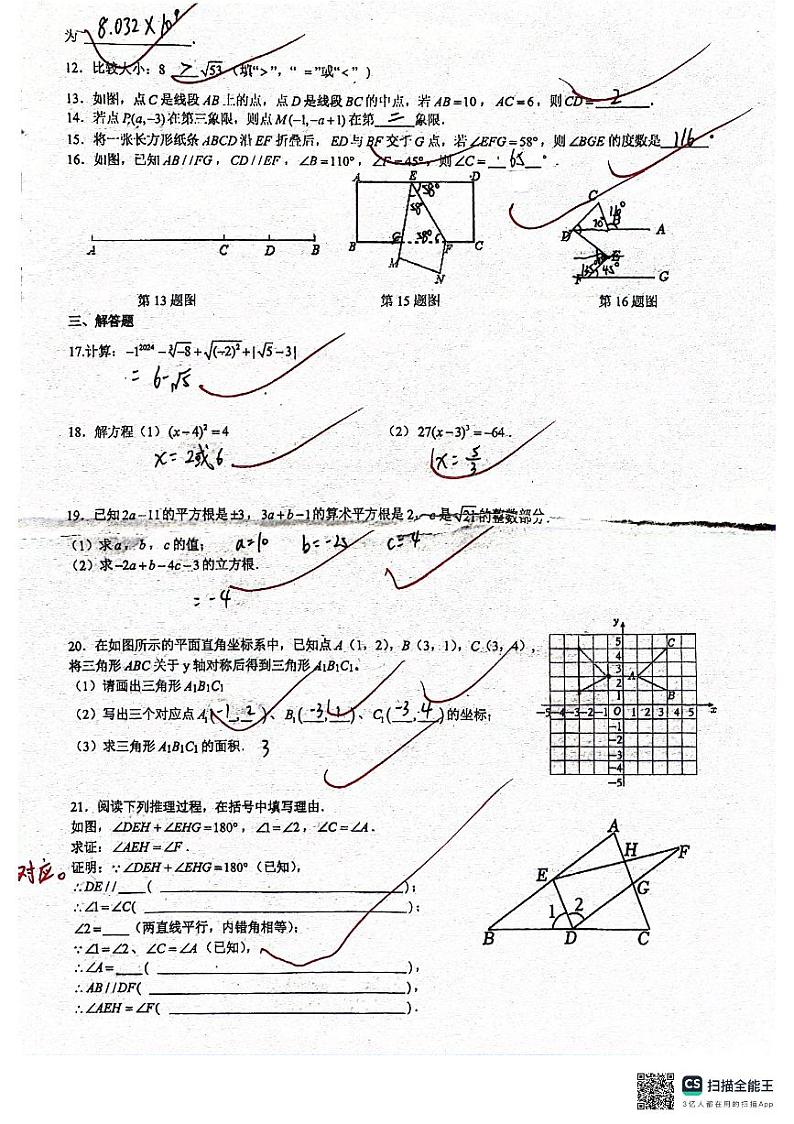 为 8.032×10⁹ .
12. 比较大小：8 > √53（填“>”，“ =”或“<” ）
13. 如图，点C是线段AB上的点，点D是线段BC的中点，若AB=10，AC=6，则CD= 2 .
14. 若点P(a,-3)在第三象限，则点M(-1,-a+1)在第 二 象限.
15. 将一张长方形纸条ABCD沿EF折叠后，ED与BF交于G点，若∠EFG=58°，则∠BGE的度数是 116
16. 如图，已知AB//FG，CD//EF，∠B=110°，∠F=45°，则∠C= 65 °.
A C D B
A E D
58°
58°
B G 58° F C
M N
C
110°
D 70° B A
E
135° 45°
F G
第13题图 第15题图 第16题图
三、解答题
17.计算：-1²⁰²⁴-∛-8+√(-2)²+|√5-3|
= 6-√5
18. 解方程（1）(x-4)²=4 （2）27(x-3)³=-64.
x=2或6 x=5/3
19. 已知2a-11的平方根是±3，3a+b-1的算术平方根是2，c是√21的整数部分.
（1）求a，b，c的值； a=10 b=-25 c=4
（2）求-2a+b-4c-3的立方根.
=-4
20. 在如图所示的平面直角坐标系中，已知点A（1，2），B（3，1），C（3，4），
将三角形ABC关于y轴对称后得到三角形A₁B₁C₁。
（1）请画出三角形A₁B₁C₁
（2）写出三个对应点A₁(-1,2)、B₁(-3,1)、C₁(-3,4)的坐标；
（3）求三角形A₁B₁C₁的面积. 3
y
5
4 C
3
2 A
1 B
-5-4-3-2-1 0 1 2 3 4 5 x
-1
-2
-3
-4
-5
21. 阅读下列推理过程，在括号中填写理由.
如图，∠DEH+∠EHG=180°，∠1=∠2，∠C=∠A.
求证：∠AEH=∠F.
对应。
证明：∵∠DEH+∠EHG=180°（已知），
∴DE//____( ____________);
∴∠1=∠C( ____________);
∠2=____（两直线平行，内错角相等）；
∵∠1=∠2、∠C=∠A（已知），
∴∠A=____( ____________),
∴AB//DF( ____________),
∴∠AEH=∠F( ____________).
A
H F
E
G
1 2
B D C
CS 扫描全能王
3亿人都在用的扫描App